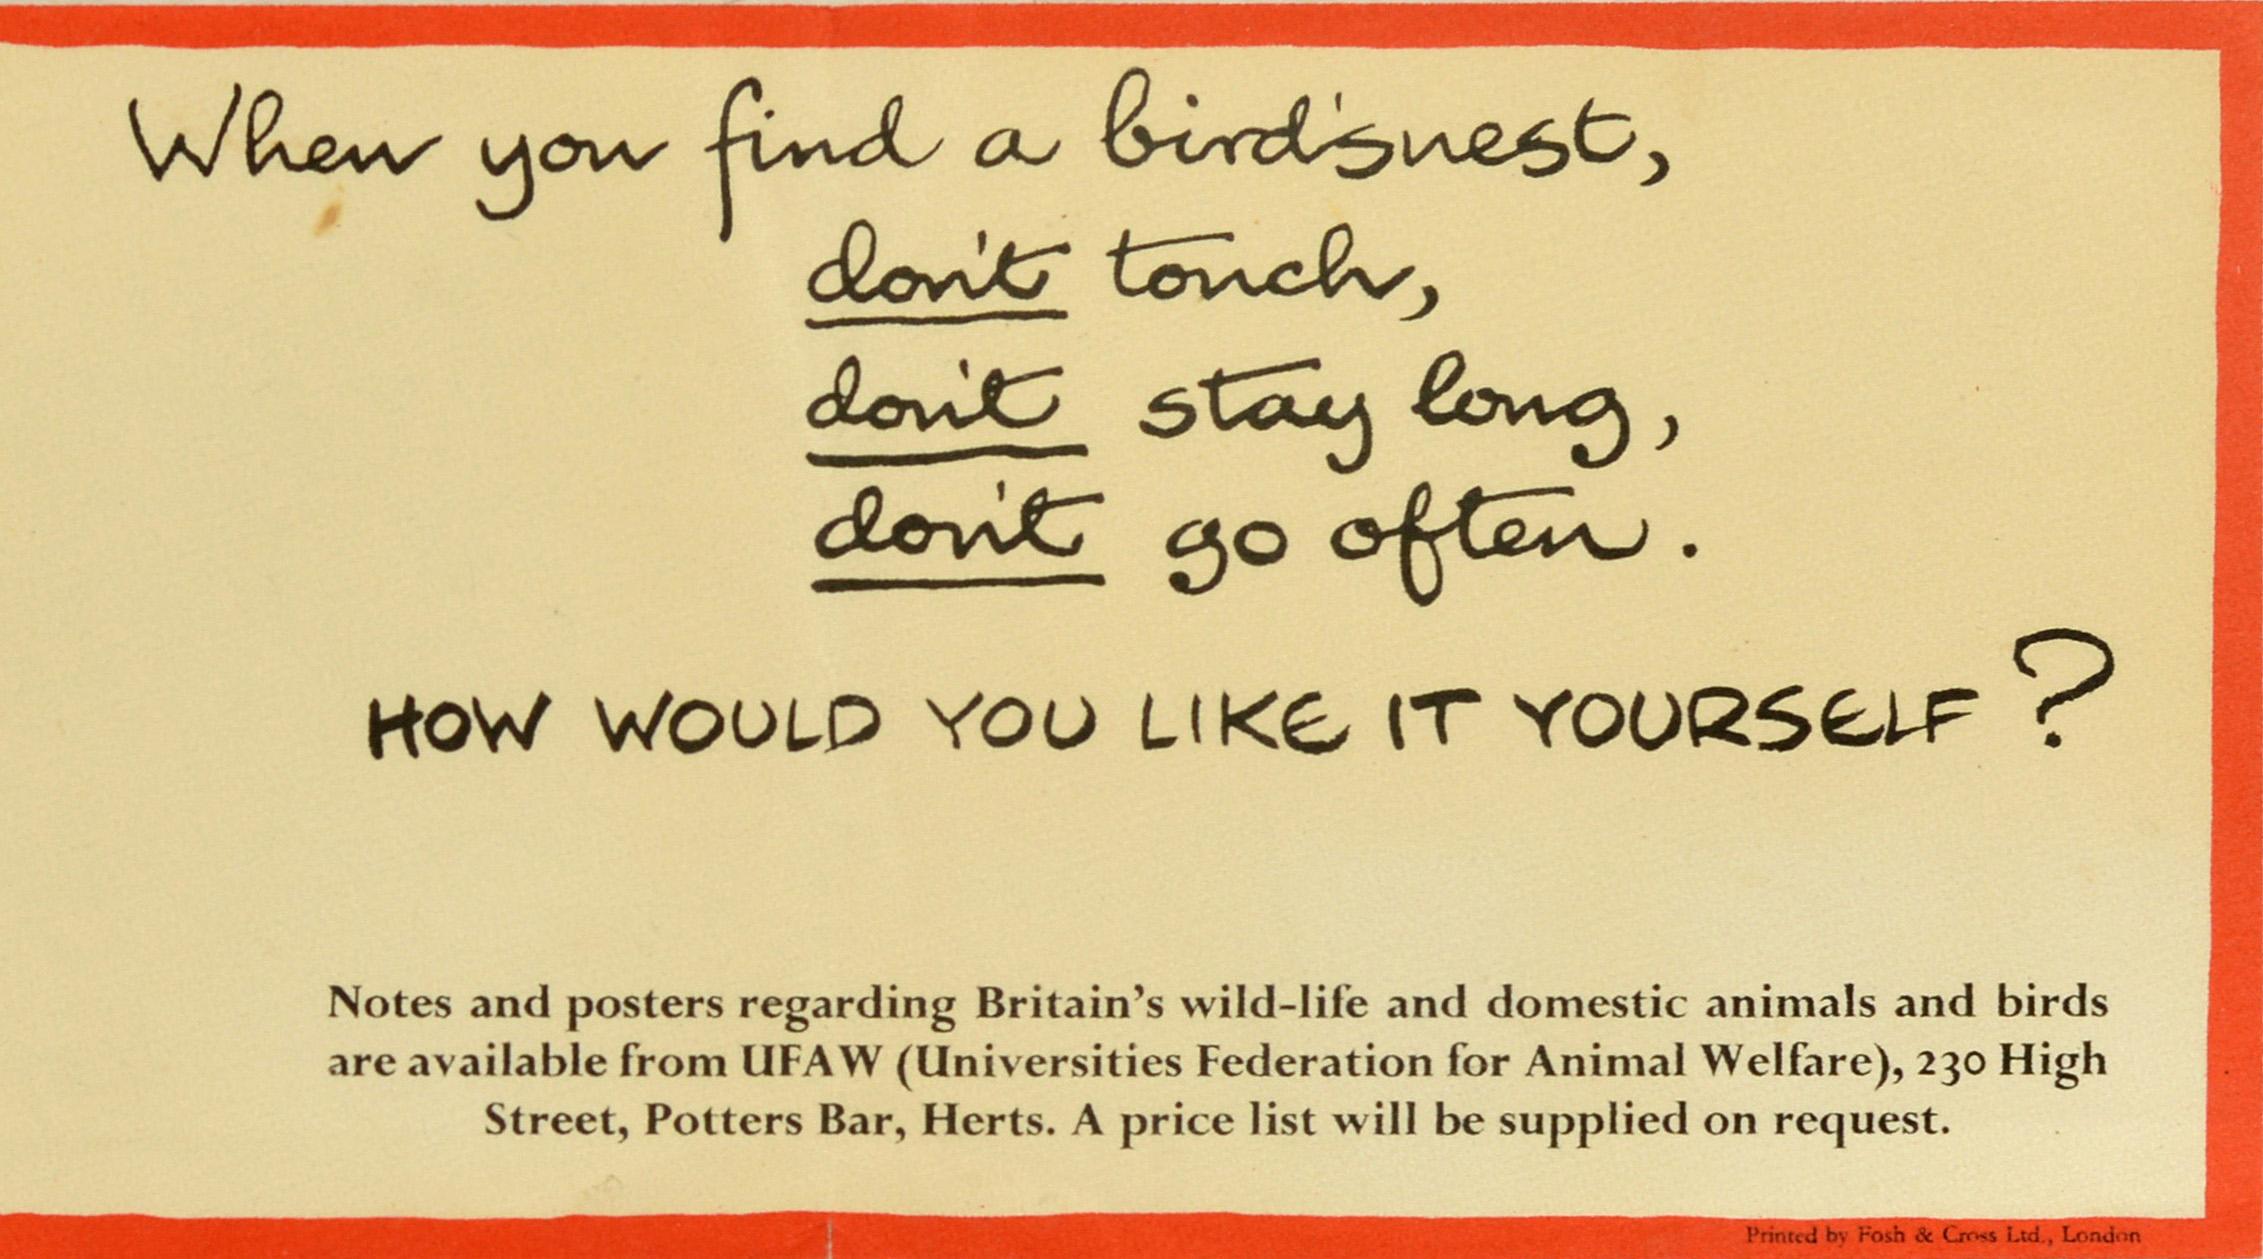 When you find a bird'snest,
don't touch,
don't stay long,
don't go often.
HOW WOULD YOU LIKE IT YOURSELF?
Notes and posters regarding Britain's wild-life and domestic animals and birds
are available from UFAW (Universities Federation for Animal Welfare), 230 High
Street, Potters Bar, Herts. A price list will be supplied on request.
Printed by Fosh & Cross Ltd., London